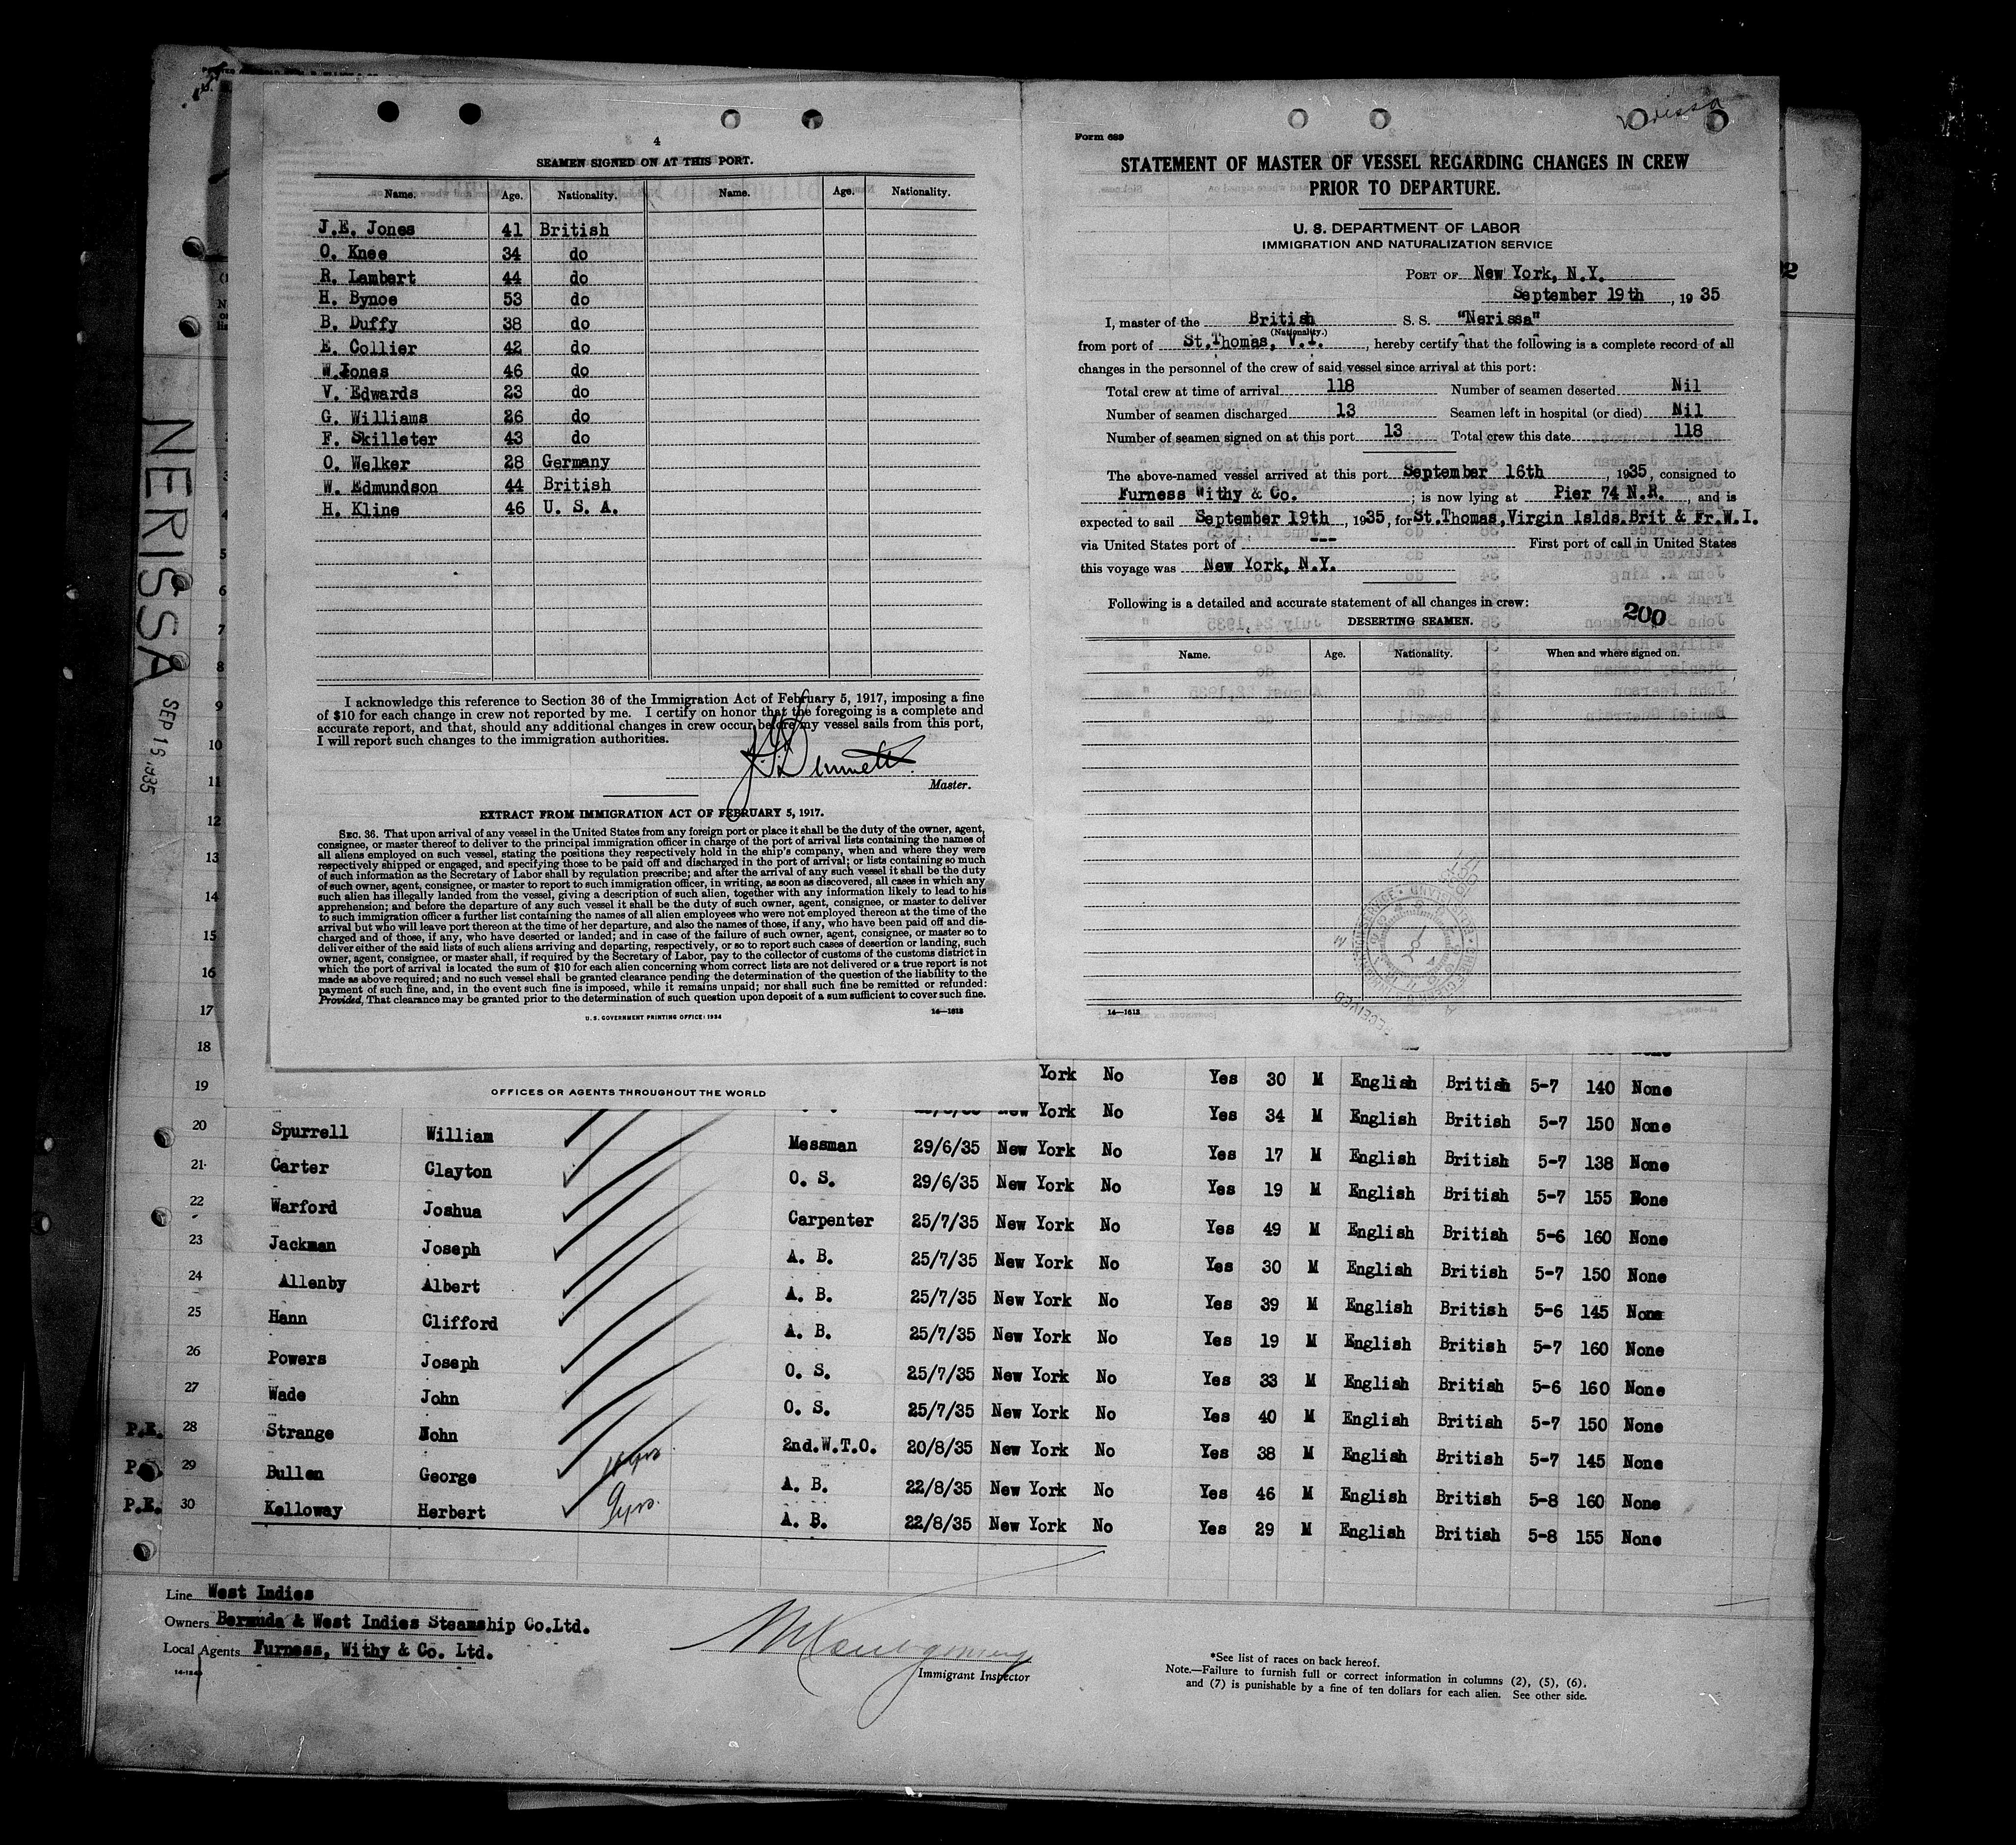 4
SEAMEN SIGNED ON AT THIS PORT.
Name. Age. Nationality. Name. Age. Nationality.
J.E. Jones 41 British
O. Knee 34 do
R. Lambert 44 do
H. Bynoe 53 do
B. Duffy 38 do
E. Collier 42 do
W.Jones 46 do
V. Edwards 23 do
G. Williams 26 do
F. Skilleter 43 do
O. Welker 28 Germany
W. Edmundson 44 British
H. Kline 46 U. S. A.
I acknowledge this reference to Section 36 of the Immigration Act of February 5, 1917, imposing a fine
of $10 for each change in crew not reported by me. I certify on honor that the foregoing is a complete and
accurate report, and that, should any additional changes in crew occur before my vessel sails from this port,
I will report such changes to the immigration authorities.
Master.
EXTRACT FROM IMMIGRATION ACT OF FEBRUARY 5, 1917.
SEC. 36. That upon arrival of any vessel in the United States from any foreign port or place it shall be the duty of the owner, agent,
consignee, or master thereof to deliver to the principal immigration officer in charge of the port of arrival lists containing the names of
all aliens employed on such vessel, stating the positions they respectively hold in the ship's company, when and where they were
respectively shipped or engaged, and specifying those to be paid off and discharged in the port of arrival; or lists containing so much
of such information as the Secretary of Labor shall by regulation prescribe; and after the arrival of any such vessel it shall be the duty
of such owner, agent, consignee, or master to report to such immigration officer, in writing, as soon as discovered, all cases in which any
such alien has illegally landed from the vessel, giving a description of such alien, together with any information likely to lead to his
apprehension; and before the departure of any such vessel it shall be the duty of such owner, agent, consignee, or master to deliver
to such immigration officer a further list containing the names of all alien employees who were not employed thereon at the time of the
arrival but who will leave port thereon at the time of her departure, and also the names of those, if any, who have been paid off and dis-
charged and of those, if any, who have deserted or landed; and in case of the failure of such owner, agent, consignee, or master so to
deliver either of the said lists of such aliens arriving and departing, respectively, or so to report such cases of desertion or landing, such
owner, agent, consignee, or master shall, if required by the Secretary of Labor, pay to the collector of customs of the customs district in
which the port of arrival is located the sum of $10 for each alien concerning whom correct lists are not delivered or a true report is not
made as above required; and no such vessel shall be granted clearance pending the determination of the question of the liability to the
payment of such fine, and, in the event such fine is imposed, while it remains unpaid; nor shall such fine be remitted or refunded:
Provided, That clearance may be granted prior to the determination of such question upon deposit of a sum sufficient to cover such fine.
U. S. GOVERNMENT PRINTING OFFICE: 1934 14—1613
Nerissa
Form 689
STATEMENT OF MASTER OF VESSEL REGARDING CHANGES IN CREW
PRIOR TO DEPARTURE.
U. S. DEPARTMENT OF LABOR
IMMIGRATION AND NATURALIZATION SERVICE
PORT OF New York, N.Y.
September 19th, 1935
I, master of the British S. S. "Nerissa"
(Nationality.)
from port of St.Thomas, V.I., hereby certify that the following is a complete record of all
changes in the personnel of the crew of said vessel since arrival at this port:
Total crew at time of arrival 118 Number of seamen deserted Nil
Number of seamen discharged 13 Seamen left in hospital (or died) Nil
Number of seamen signed on at this port 13 Total crew this date 118
The above-named vessel arrived at this port September 16th, 1935, consigned to
Furness Withy & Co.; is now lying at Pier 74 N.R., and is
expected to sail September 19th, 1935, for St.Thomas,Virgin Islds.Brit & Fr.W.I.
via United States port of --- First port of call in United States
this voyage was New York, N.Y.
Following is a detailed and accurate statement of all changes in crew:
200
DESERTING SEAMEN.
Name. Age. Nationality. When and where signed on.
14—1613
NERISSA
SEP 16 1935
OFFICES OR AGENTS THROUGHOUT THE WORLD
3
4
5
6
7
8
9
10
11
12
13
14
15
16
17
18
19 York No Yes 30 M English British 5-7 140 None
New York No Yes 34 M English British 5-7 150 None
20 Spurrell William Messman 29/6/35 New York No Yes 17 M English British 5-7 138 None
21 Carter Clayton O. S. 29/6/35 New York No Yes 19 M English British 5-7 155 None
22 Warford Joshua Carpenter 25/7/35 New York No Yes 49 M English British 5-6 160 None
23 Jackman Joseph A. B. 25/7/35 New York No Yes 30 M English British 5-7 150 None
24 Allenby Albert A. B. 25/7/35 New York No Yes 39 M English British 5-6 145 None
25 Hann Clifford A. B. 25/7/35 New York No Yes 19 M English British 5-7 160 None
26 Powers Joseph O. S. 25/7/35 New York No Yes 33 M English British 5-6 160 None
27 Wade John O. S. 25/7/35 New York No Yes 40 M English British 5-7 150 None
P.E. 28 Strange John 2nd.W.T.O. 20/8/35 New York No Yes 38 M English British 5-7 145 None
29 Bullen George A. B. 22/8/35 New York No Yes 46 M English British 5-8 160 None
P.E. 30 Kelloway Herbert 9yrs. A. B. 22/8/35 New York No Yes 29 M English British 5-8 155 None
Line West Indies
Owners Bermuda & West Indies Steamship Co.Ltd.
Local Agents Furness, Withy & Co. Ltd.
Immigrant Inspector
*See list of races on back hereof.
Note.—Failure to furnish full or correct information in columns (2), (5), (6),
and (7) is punishable by a fine of ten dollars for each alien. See other side.